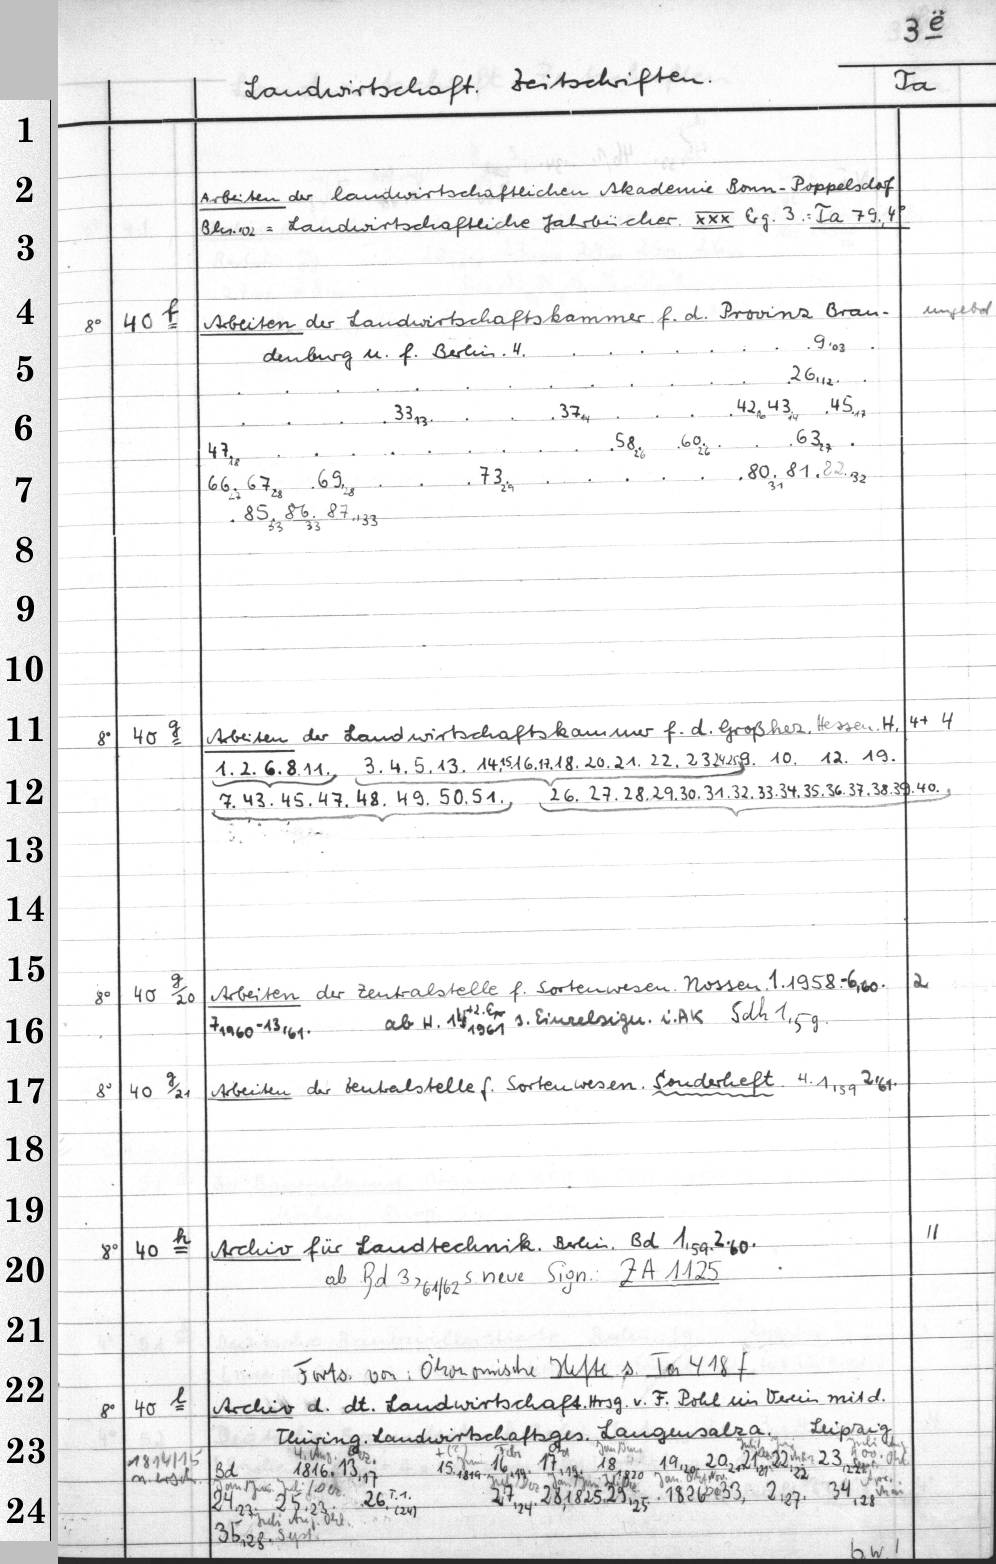 3 ë
Landwirtschaft. Zeitschriften. Ta
1
2 Arbeiten der landwirtschaftlichen Akademie Bonn-Poppelsdorf
3 = Landwirtschaftliche Jahrbücher. XXX Erg. 3.: Ta 79, 4°
4 8° 40 f Arbeiten der Landwirtschaftskammer f. d. Provinz Bran-
denburg u. f. Berlin. H. . . . . . . . 9,03 .
5 . . . . . . . . . . . 26,12. .
6 . . . . 33,13. . . . 37,14 . . . . 42,16 43,14 . 45,17
47,18 . . . . . . . . . 58,26 . 60,26 . . . 63,27 .
7 66,27 67,28 . 69,28 . . . 73,29 . . . . . . 80,31 . 81 . 82,32
. 85,33 86,33 87,33
8
9
10
11 8° 40 g Arbeiten der Landwirtschaftskammer f. d. Großherz. Hessen. H. 4+ 4
1. 2. 6. 8. 11. 3. 4. 5. 13. 14. 15. 16. 17. 18. 20. 21. 22. 23 24 25 9. 10. 12. 19.
12 7. 43. 45. 47. 48. 49. 50. 51. 26. 27. 28. 29. 30. 31. 32. 33. 34. 35. 36. 37. 38. 39. 40.
13
14
15 8° 40 g/20 Arbeiten der Zentralstelle f. Sortenwesen. Nossen. 1.1958-6,60. 2
16 7,1960-13,61. ab H. 14 1961 s. Einzelsign. i. AK Sdh 1,59.
17 8° 40 g/21 Arbeiten der Zentralstelle f. Sortenwesen. Sonderheft. H. 1,59 2,61.
18
19
20 8° 40 h Archiv für Landtechnik. Berlin. Bd 1,59. 2,60. 11
ab Bd 3,61/62 s. neue Sign.: ZA 1125
21
22 Forts. von: Ökonomische Hefte s. Ta 418 f
8° 40 l Archiv d. dt. Landwirtschaft. Hrsg. v. F. Pohl im Verein mit d.
23 Thüring. Landwirtschaftsges. Langensalza. Leipzig
1814/15 Bd 1816. 13,17 15,1819. 16,19. 17,19. 18,1820 19,20 20,21 21,21 22,22 23
24 24,23 25,23. 26 27,24 28,1825. 29,25. 1826 33, 2,27. 34,28
35,28.
b. w.!